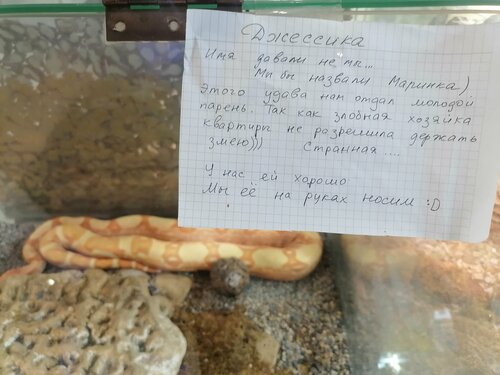 Джессика
Имя давали не мы...
Мы бы назвали Маринка)
Этого удава нам отдал молодой
парень. Так как злобная хозяйка
квартиры не разрешила держать
змею))) Странная....
У нас ей хорошо
Мы её на руках носим :D